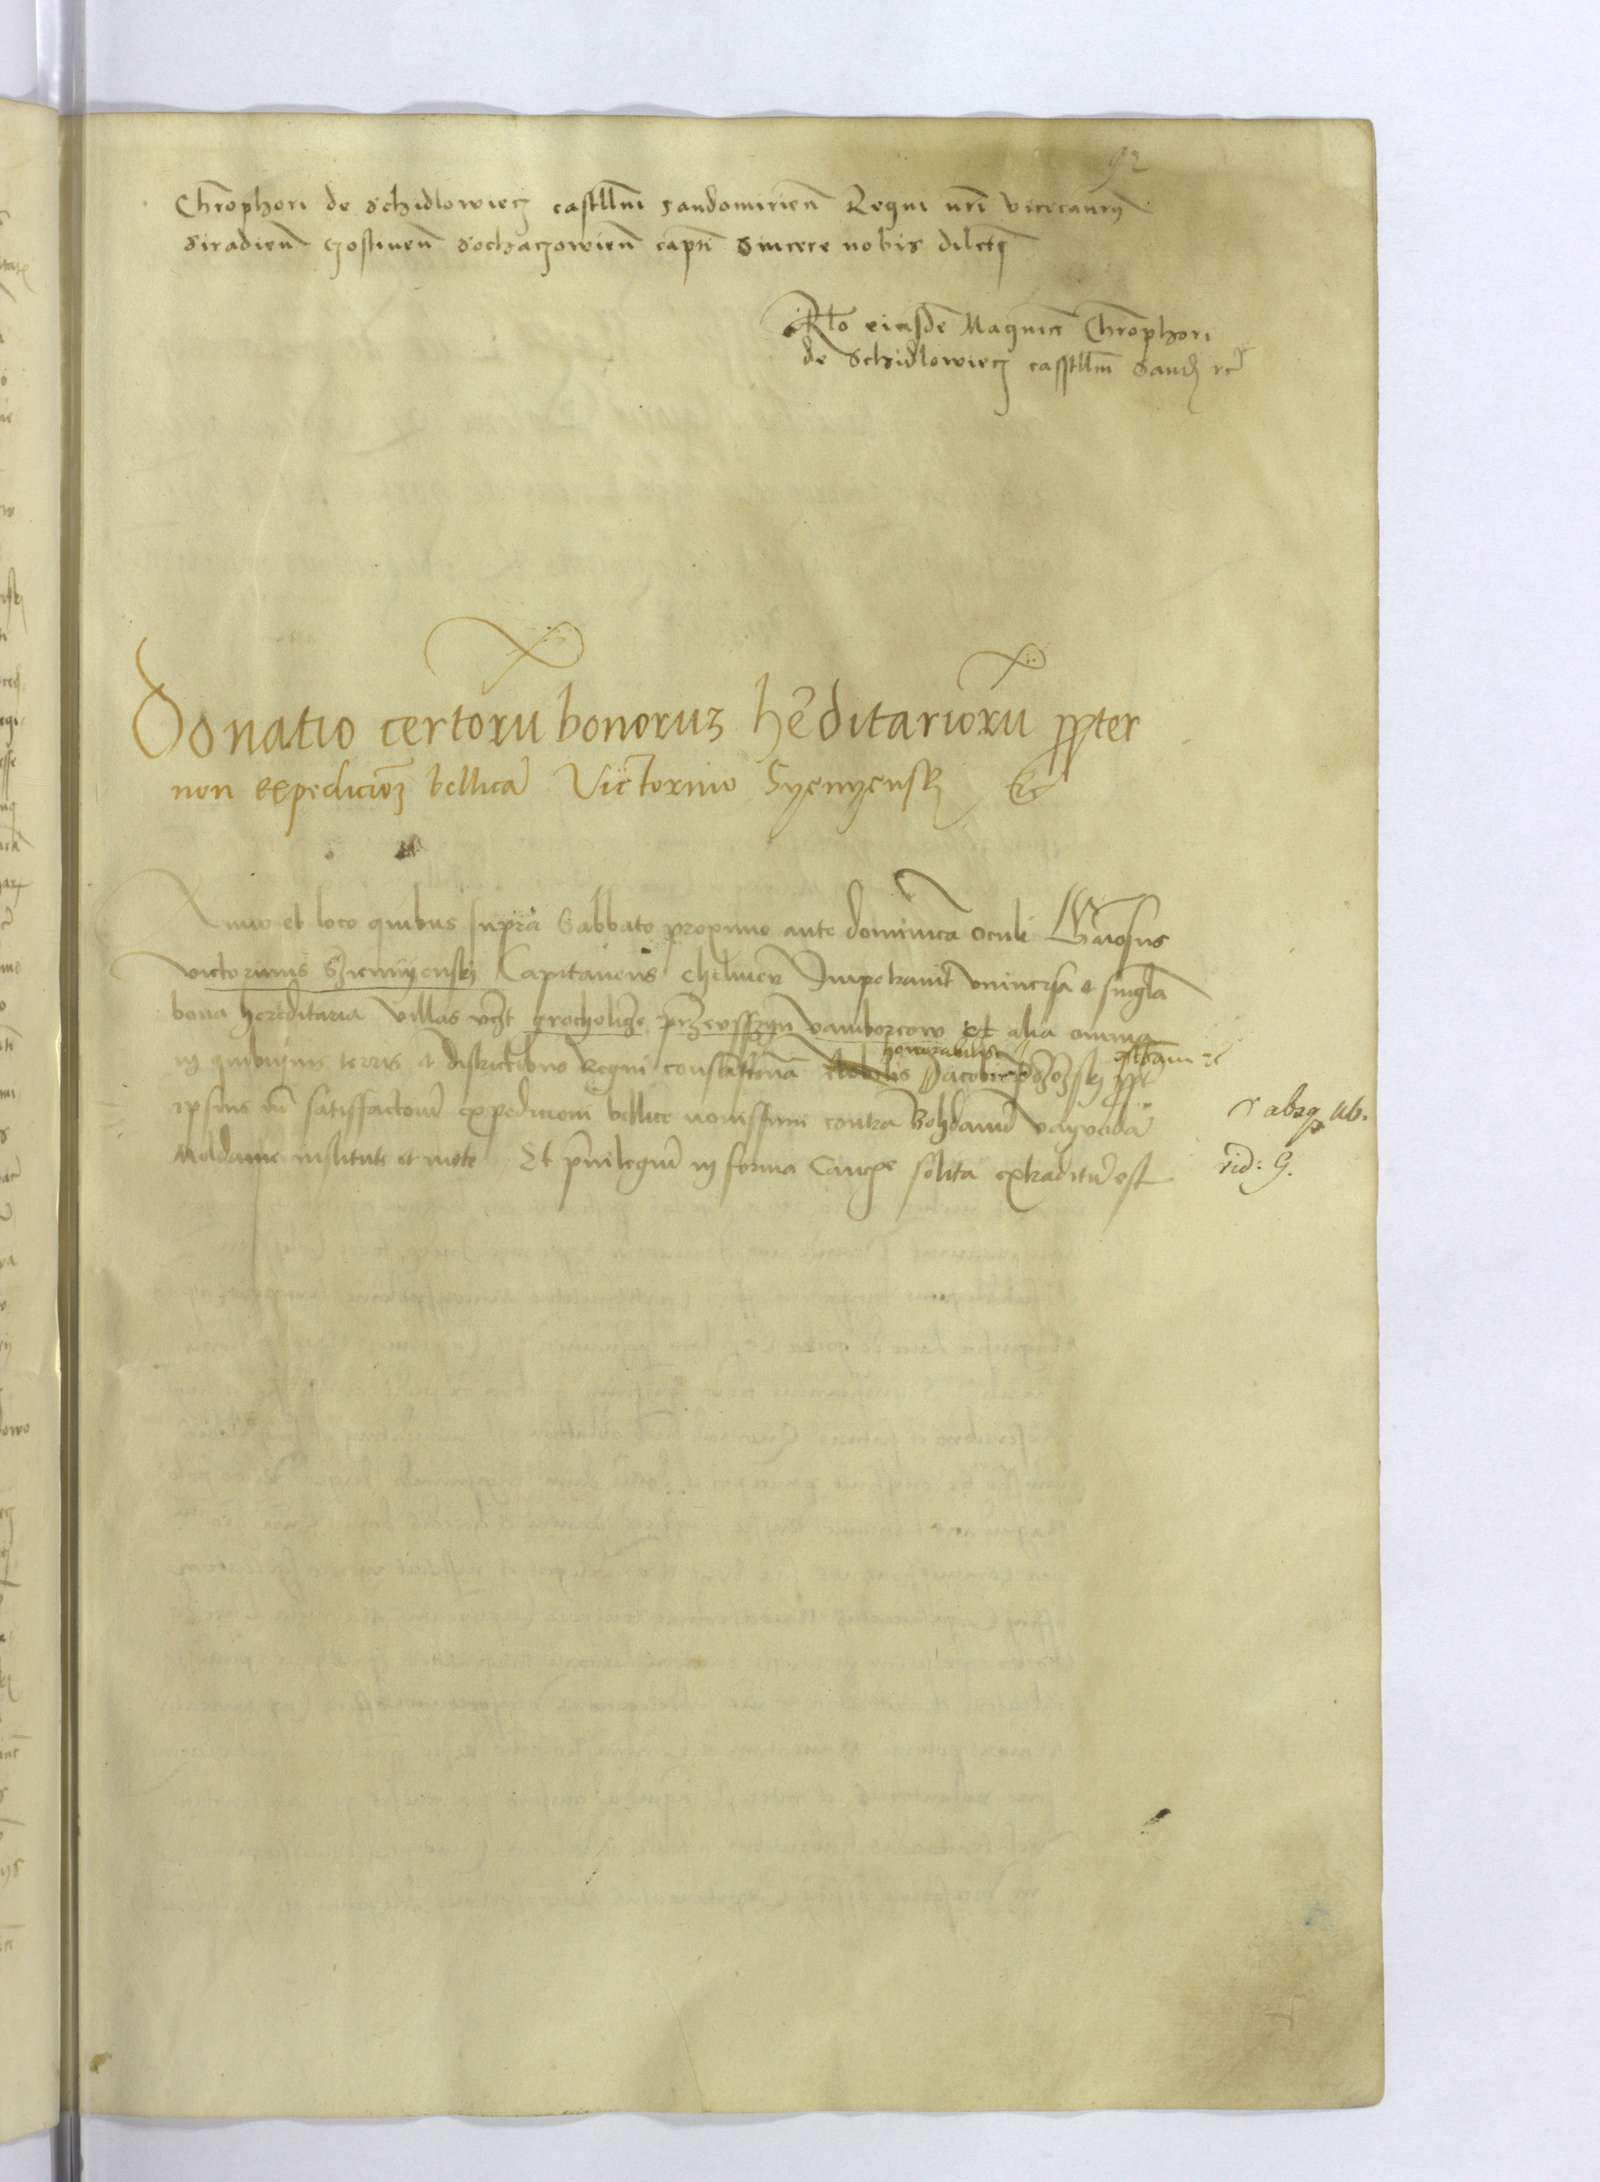 92
Chrophori de Schidlowiecz castllni Sandomirien Regni nri Vicecancrij
Siradien Gostinen Sochaczowien capti Sincere nobis dilcti
Rlo eiusde Magnici Chrophori
de Schidlowiecz casstllni Sand rc
Donatio certoru bonorum heditarioru ppter
non expedicionem bellica Victorino Syenyensky Etc
Anno et loco quibus supra Sabbato proximo ante dominica Oculi Gnosus
Victorinus Szienyensky Capitaneus Chelmen Impetravit universa et singula
bona hereditaria villas vczt grocholicze przewsszyn et alia omnia
in quibusvis terris et districtibus Regni consistentia Nobilis honorabilis Jacobi ppt
ipsius non satisffactionem expedicioni bellice novissime contra Bohdanum vayvoda
Moldavie institute et mote Et privilegium in forma Canc solita extraditu est